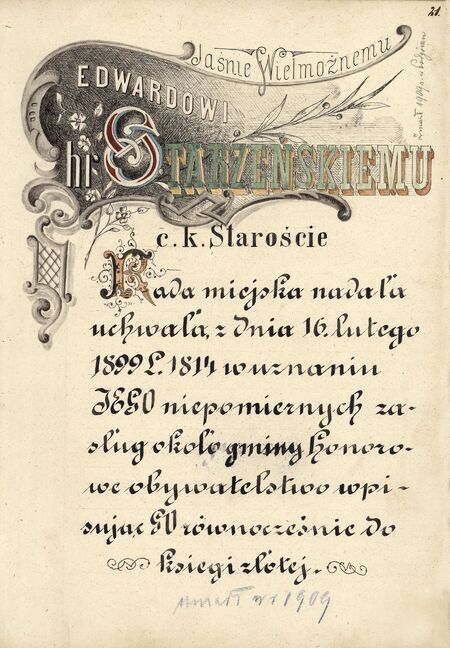 21.
Jaśnie Wielmożnemu
EDWARDOWI
hr. STARZEŃSKIEMU
c. k. Staroście
Rada miejska nadała
uchwałą z dnia 16. lutego
1899 L. 1814 w uznaniu
JEGO niepomiernych za-
sług około gminy honoro-
we obywatelstwo wpi-
sując GO równocześnie do
księgi złotej.
umarł w r 1909
zmarł 1909 r.